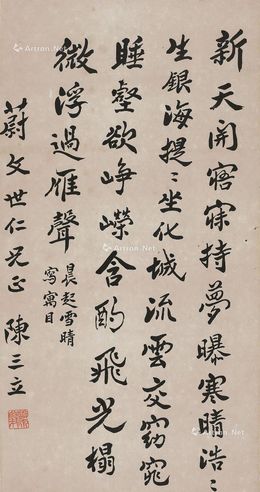 新天開寤寐持夢曝寒晴浩〻
生銀海提〻坐化城流雲交窈窕
睡壑欲崢嶸含酌飛光榻
微浮過雁聲
晨起雪晴
寫寓目
蔚文世仁兄正 陳三立
Artron.Net
Artron.Net
Artron.Net
Artron.Net
Artron.Net